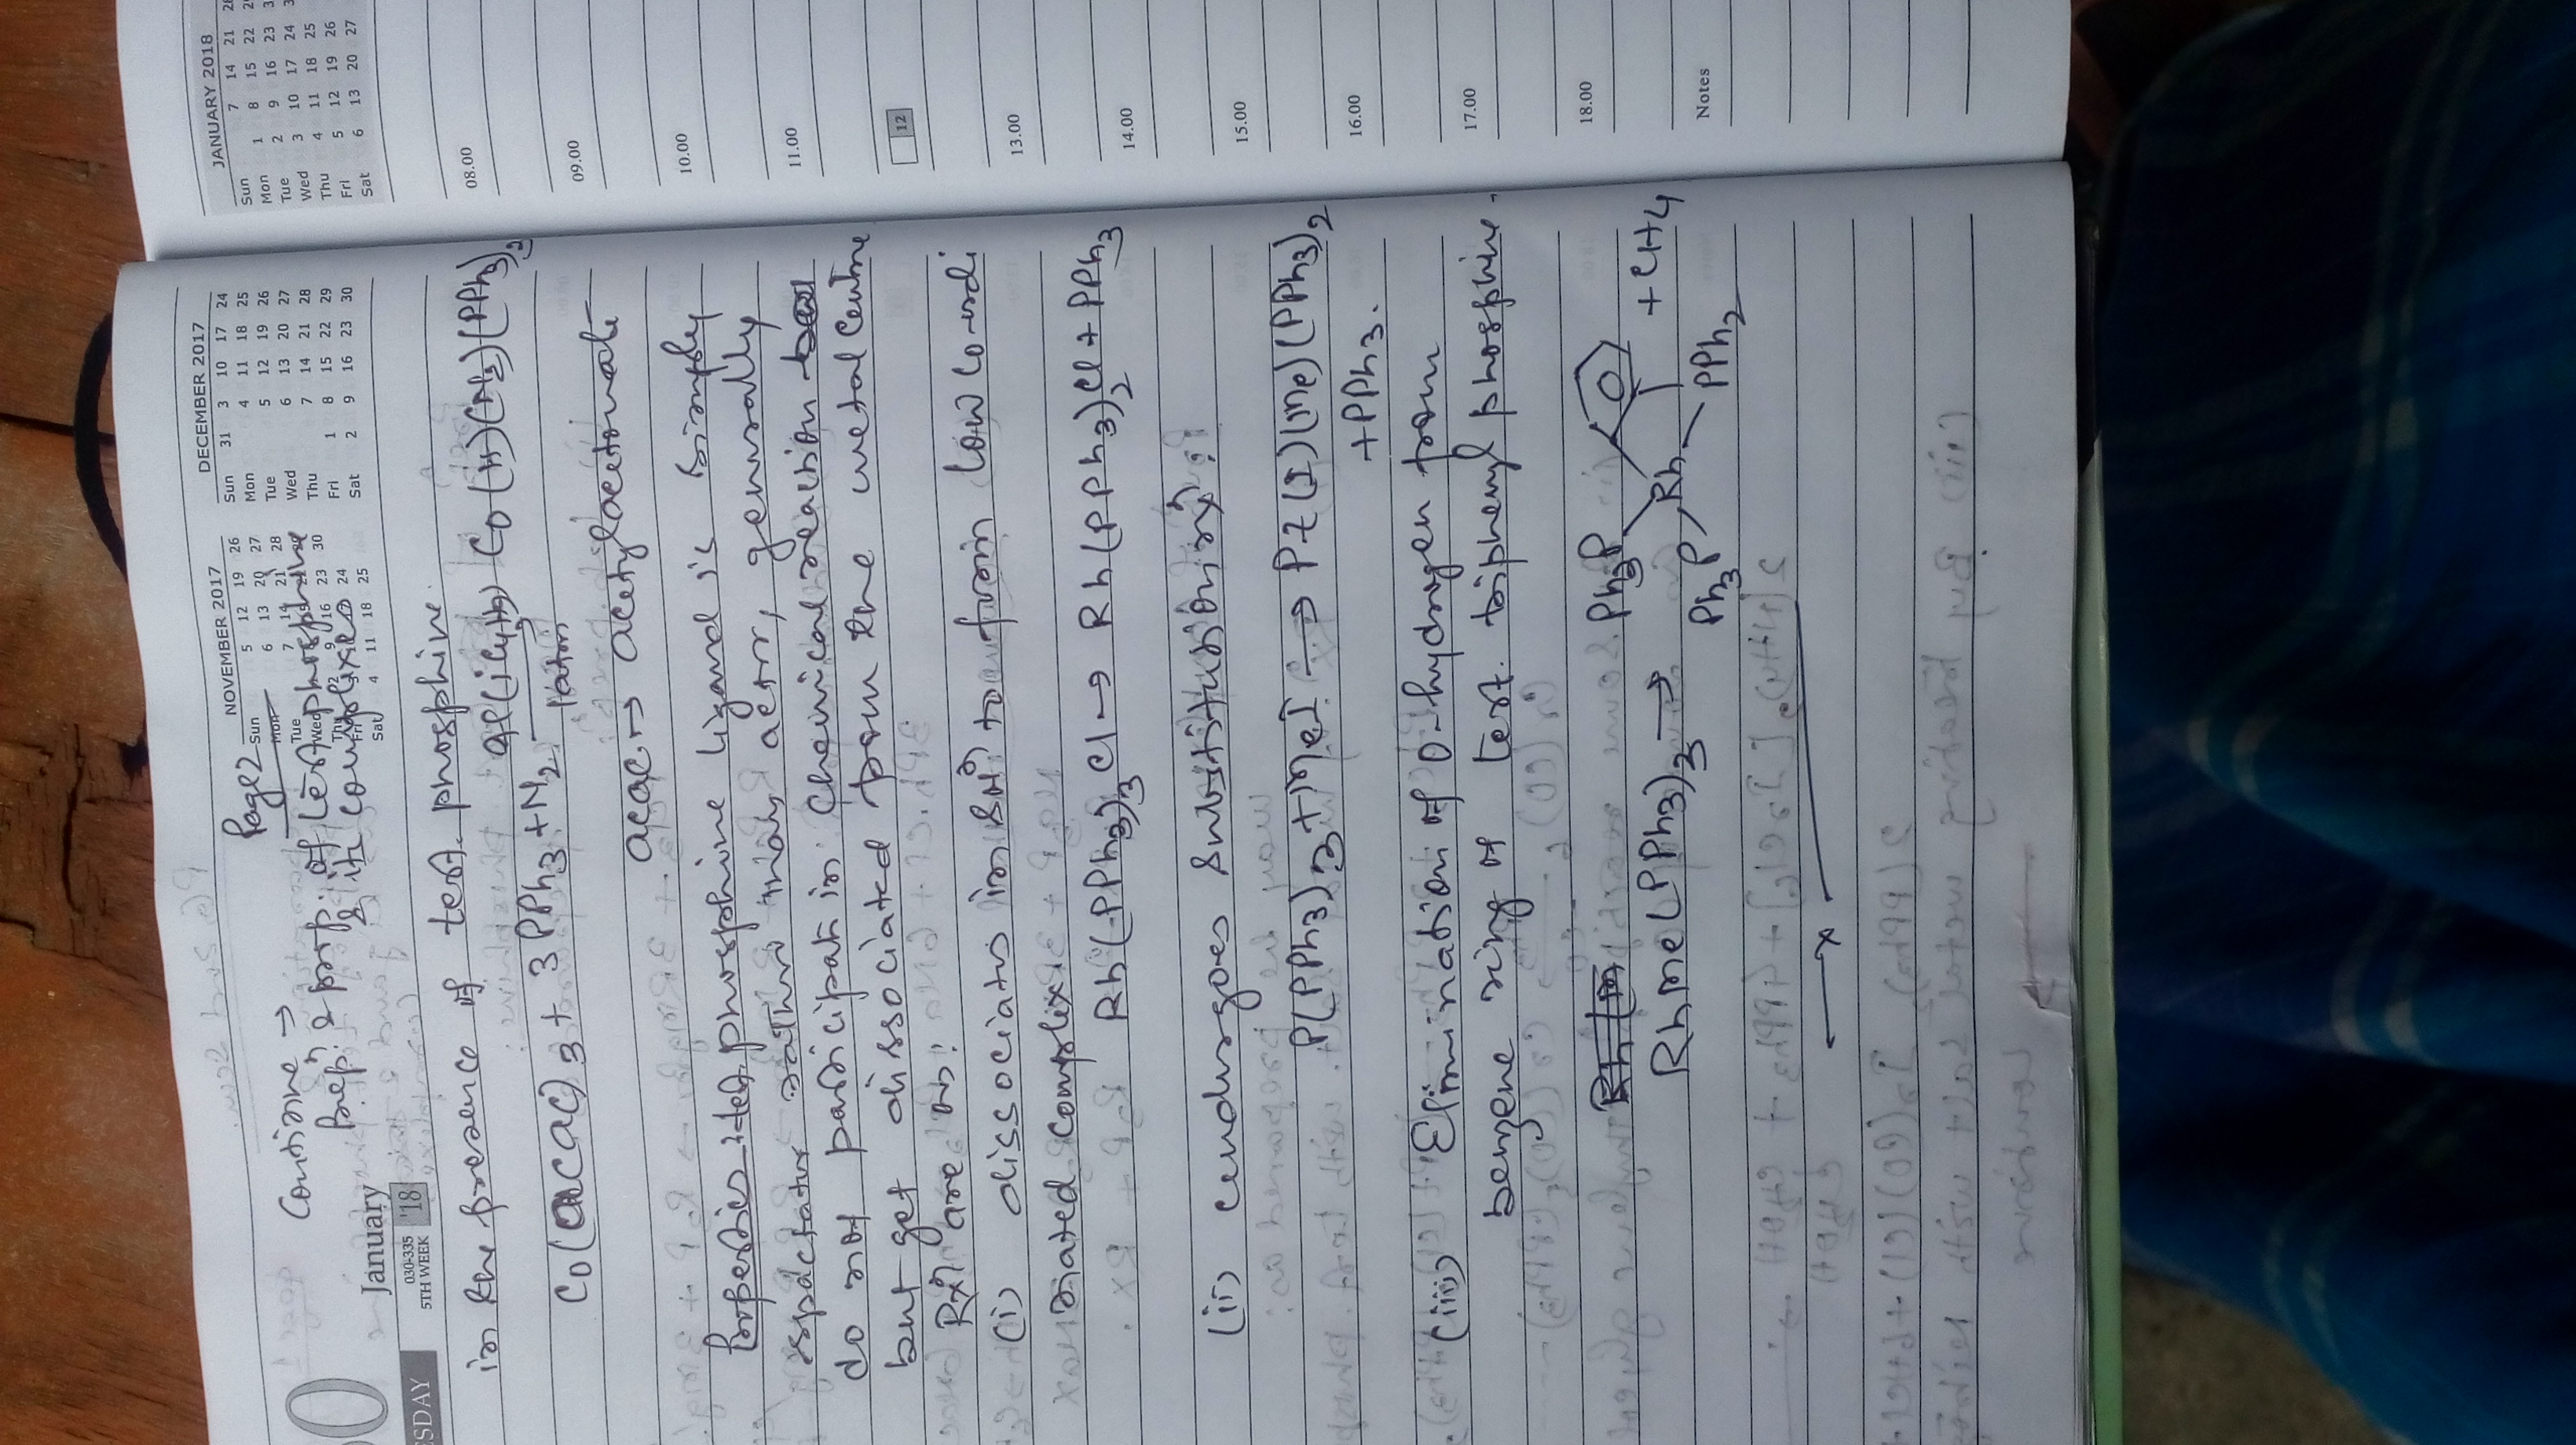 Page 2
Continue →
Prepⁿ & prop. of tert. phosphine
& it complexes
January
030-335
5TH WEEK '18
NOVEMBER 2017
Sun 5 12 19 26
Mon 6 13 20 27
Tue 7 14 21 28
Wed
Thu 2 9 16 23 30
Fri 24
Sat 4 11 18 25
DECEMBER 2017
Sun 31 3 10 17 24
Mon 4 11 18 25
Tue 5 12 19 26
Wed 6 13 20 27
Thu 7 14 21 28
Fri 1 8 15 22 29
Sat 2 9 16 23 30
in the presence of tert. phosphine.
Co(acac)3 + 3PPh3 + N2 Co(H)(N2)(PPh3)2
1atm
acac → acetylacetonate
Properties:- tert. phosphine ligand is simply
rather than actr, generally
do not participat in chemical reaction
but get dissociated from the metal centre
Rxⁿ are as:
(i) dissociates in solⁿ to form low co-ordi
nated complex
Rh(PPh3)3Cl → Rh(PPh3)2Cl + PPh3
(ii) undergoes substitution rxⁿ:
P(PPh3)3 + MeI → Pt(I)(Me)(PPh3)2
+ PPh3.
(iii) Elimination of O-hydrogen from
benzene ring of tert. triphenyl phosphine.
RhMe(PPh3)3 → Ph3P Rh + CH4
Ph3P PPh2
← x →
JANUARY 2018
Sun 7 14 21 28
Mon 1 8 15 22 29
Tue 2 9 16 23
Wed 3 10 17 24
Thu 4 11 18 25
Fri 5 12 19 26
Sat 6 13 20 27
08.00
09.00
10.00
11.00
12
13.00
14.00
15.00
16.00
17.00
18.00
Notes